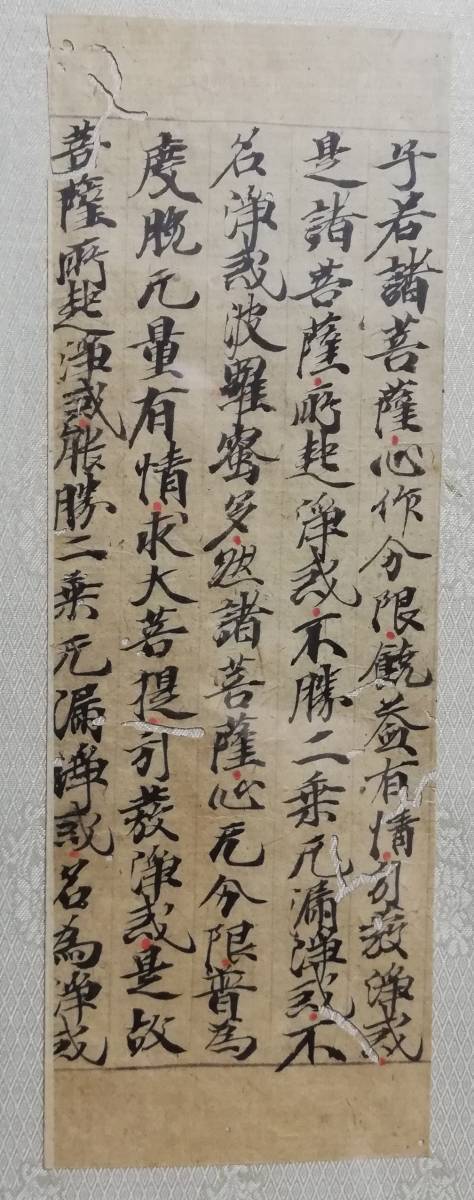 子若諸菩薩心作分限饒益有情引發淨戒
是諸菩薩所起淨戒不勝二乘无漏淨戒不
名淨戒波羅蜜多然諸菩薩心无分限普為
度脫无量有情求大菩提引發淨戒是故
菩薩所起淨戒能勝二乘无漏淨戒名為淨戒